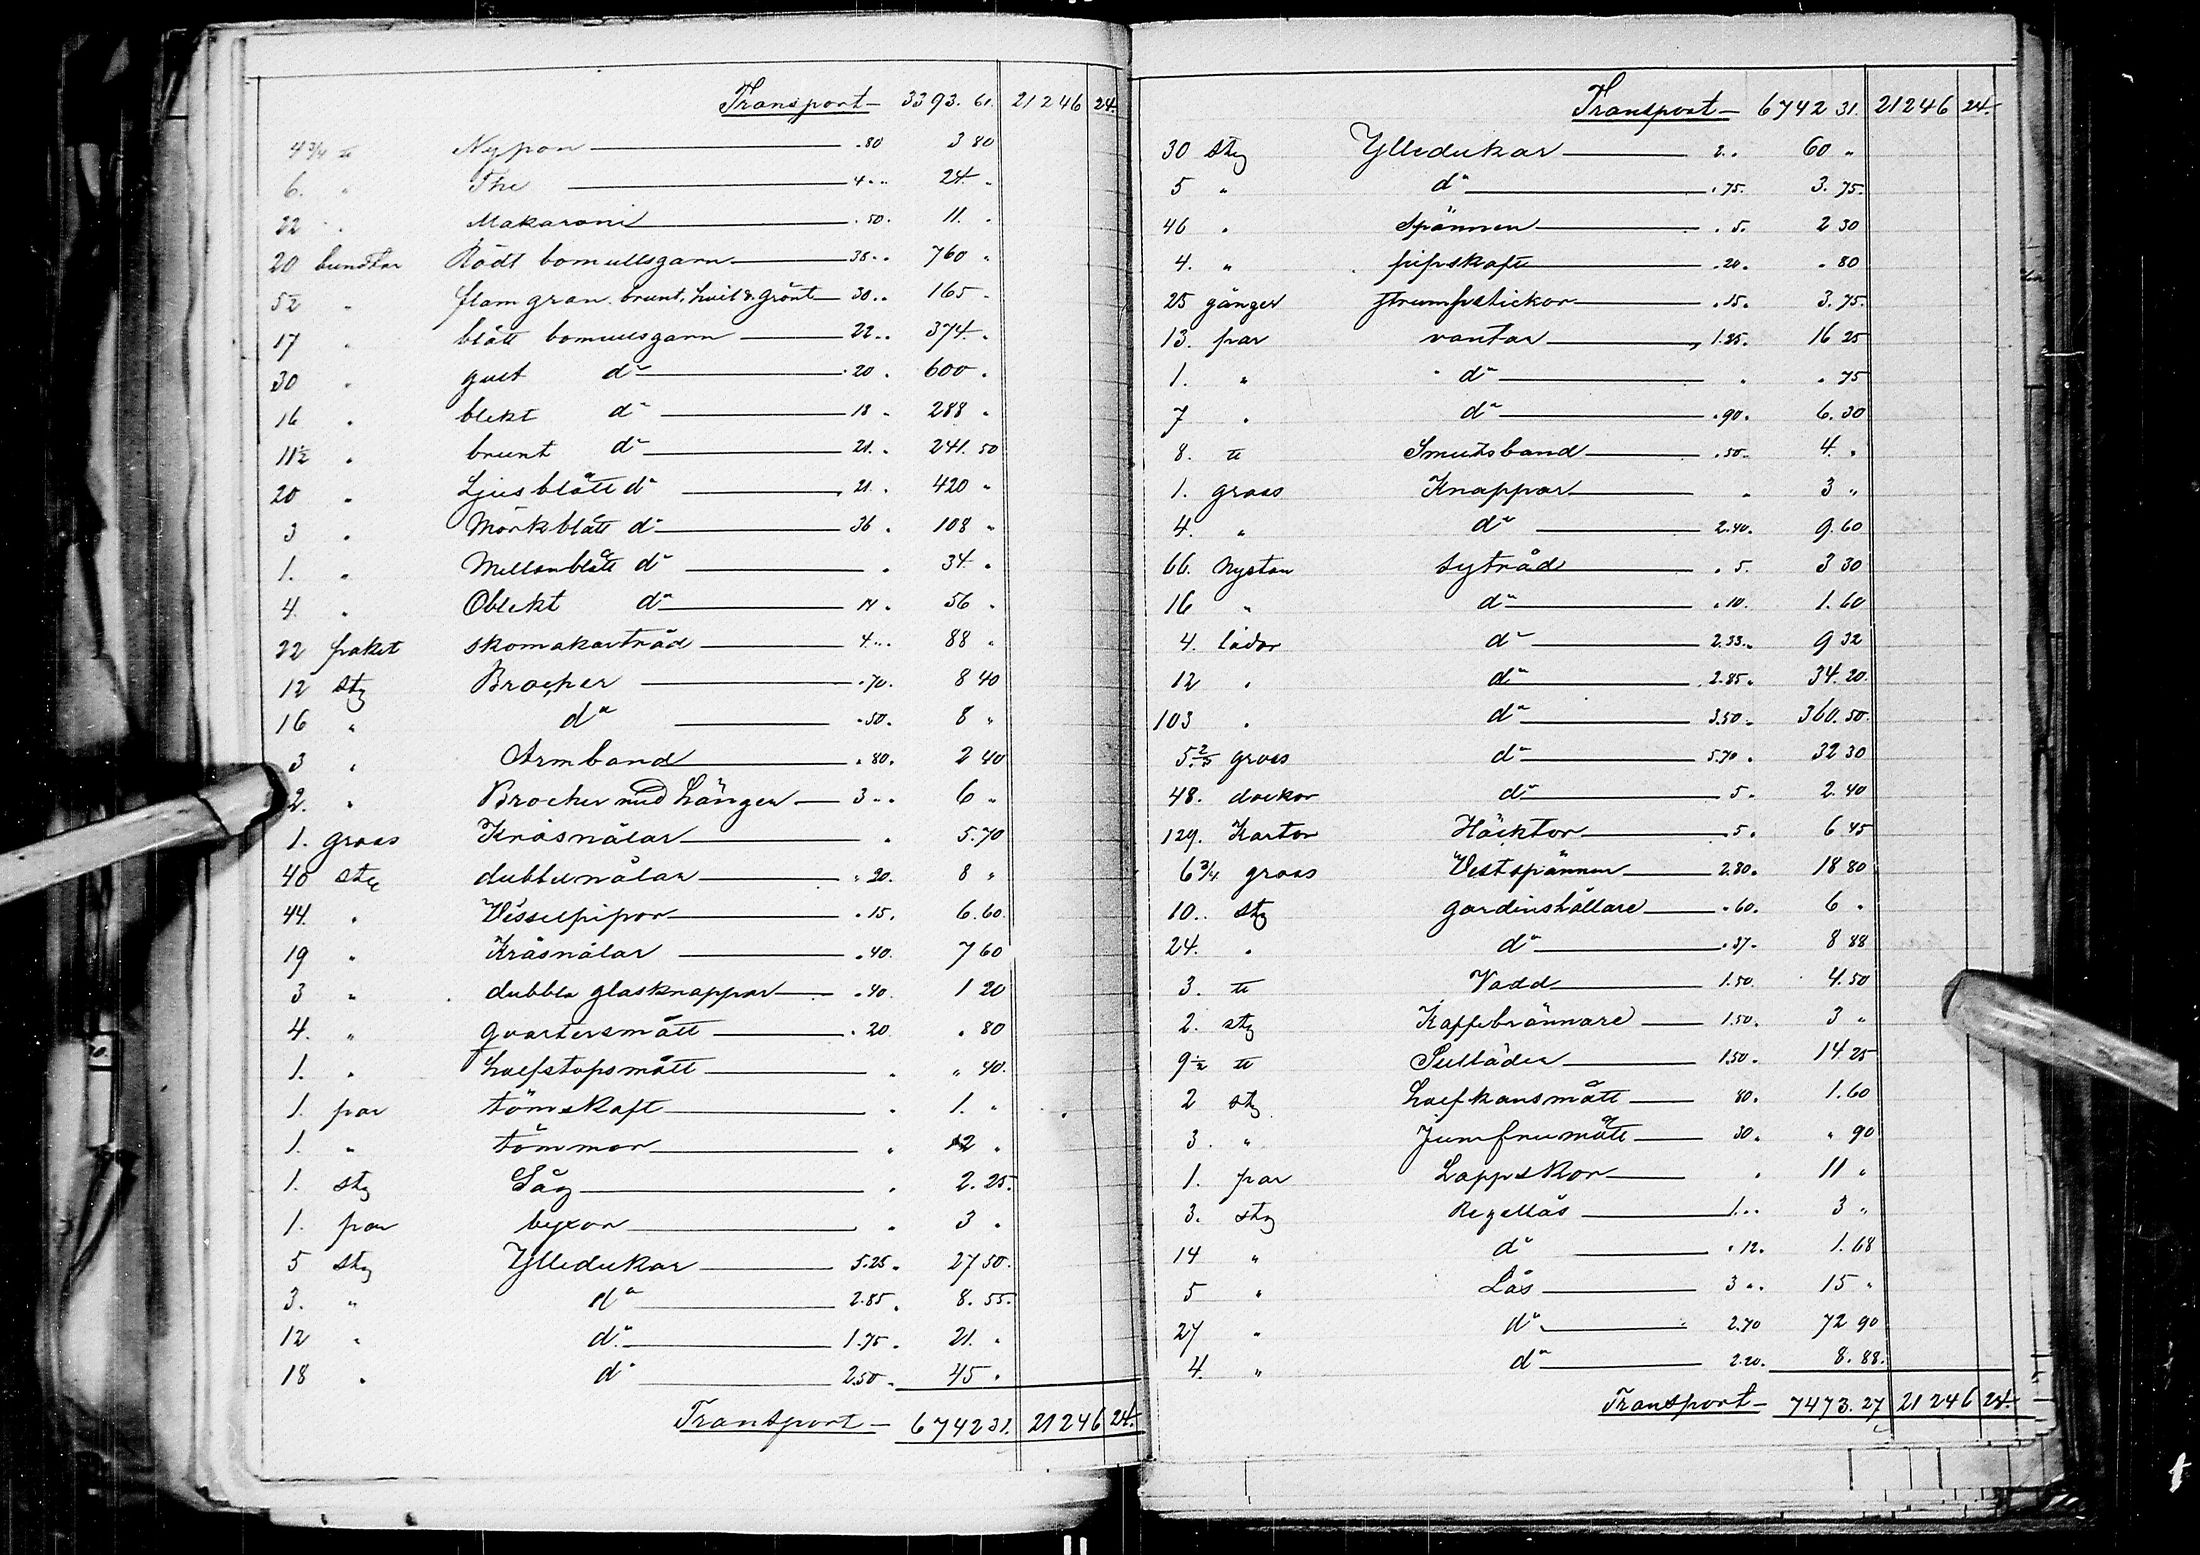 Transport — 3393. 61. 21246 24.
4 3/4 ℔ Nypon — .80 3 80
6. " The — 4 .. 24. "
22 " Makaroni — . 50. 11. "
20 bundtar Rödt bomullsgarn — 38 .. 760 "
5½ " flamgran. brunt, hvit & grönt — 30 .. 165 "
17 " blått bomullsgarn — 22 .. 374. "
30 " gult do — 20 . 600 "
16 " blekt do — 18 . 288 "
11½ " brunt do — 21. . 241. 50
20 " Ljusblått do — 21. . 420 "
3 " Mörkblått do — 36 . 108 "
1. " Mellanblått do — . 34. "
4. " Oblekt do — 14 . 56 "
22 paket skomakartråd — 4 ... 88 "
12 sty Brocher — .70. 8 40
16 " do — .50. 8 "
3 " Armband — .80. 2 40
2. " Brocher med hängen — 3 .. 6 "
1. gross Kråsnålar — . 5.70
40 sty dubblunålar — . 20. 8 "
44. " Visselpipor — . 15. 6.60
19 " Kråsnålar — .40. 7 60
3 " dubbla glasknappar — .40. 1 20
4. " Qvartersmått — . 20 . 80
1. " halfstopsmått — . " 40.
1. par tömskaft — . 1. "
1. " tömmar — . 12 "
1. sty Såg — . 2. 25.
1. par byxor — . 3 "
5 sty Ylledukar — 5.25 . 27 50.
3. " do — 2.85 . 8. 55.
12 " do — 1.75 . 21. "
18 " do — 2.50 . 45 "
Transport — 6742 31. 21246 24.
Transport — 6742 31. 21246 24.
30 sty Ylledukar — 2 .. 60 "
5 " do — .75. 3. 75.
46 " Spännen — . 5. 2 30
4. " pipskaft — .20. " 80
25 gånger strumpstickor — . 15. 3. 75.
13. par vantar — 1.25. 16 25
1. " do — " " 75
7 " do — .90. 6. 30
8. ℔ Smutsband — .50. 4. "
1. gross Knappar — " 3 "
4. " do — 2.40. 9.60
66. Nystan sytråd — . 5. 3 30
16 " do — . 10. 1. 60
4. lådor do — 2.33. 9 32
12 " do — 2.85. 34. 20.
103 " do — 3.50. 360. 50.
5 2/3 gross do — 5.70 . 32 30
48. dockor do — 5. 2. 40
129. Kartor Häcktor — 5. 6 45
6 3/4 gross Vestspännen — 2.80. 18 80
10. sty gardinshållare — .60. 6 "
24. " do — .37. 8 88
3. ℔ Vadd — 1.50. 4. 50
2. sty Kaffebrännare — 1.50. 3 "
9½ ℔ Sulläder — 1.50. 14 25
2 sty halfkansmått — 80. 1. 60
3. " Jumfrumått — 30. " 90
1. par Lappskor — . 11 "
3. sty Regellås — 1 .. 3 "
14 " do — . 12. 1. 68
5 " Lås — 3 .. 15 "
27 " do — 2.70 72 90
4. " do — 2.20. 8. 88.
Transport — 7473. 27 21246 24.